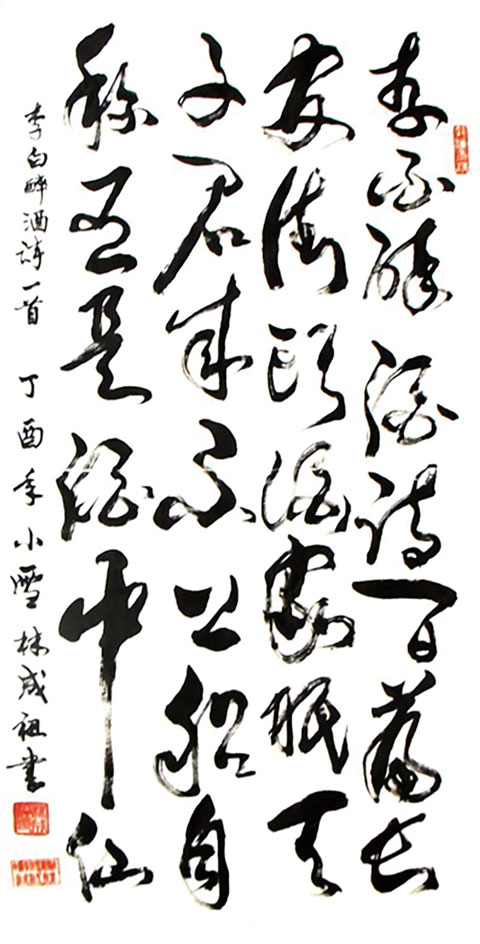 李白醉酒诗百篇长
安街头酒家眠天
子君来不上船自
称臣是酒中仙
李白醉酒诗一首 丁酉年小雪 林成祖书